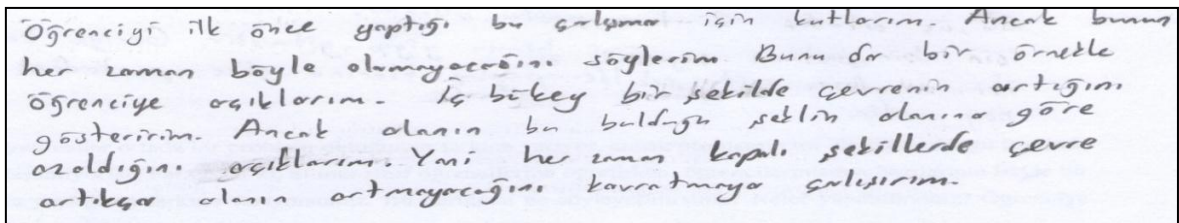 Öğrenciyi ilk önce yaptığı bu çalışma için kutlarım. Ancak bunun
her zaman böyle olmayacağını söylerim. Bunu da bir örnekle
öğrenciye açıklarım. İç bükey bir şekilde çevrenin artığını
gösteririm. Ancak alanın bu bulduğu şeklin alanına göre
azaldığını açıklarım. Yani her zaman kapalı şekillerde çevre
artıkça alanın artmayacağını kavratmaya çalışırım.